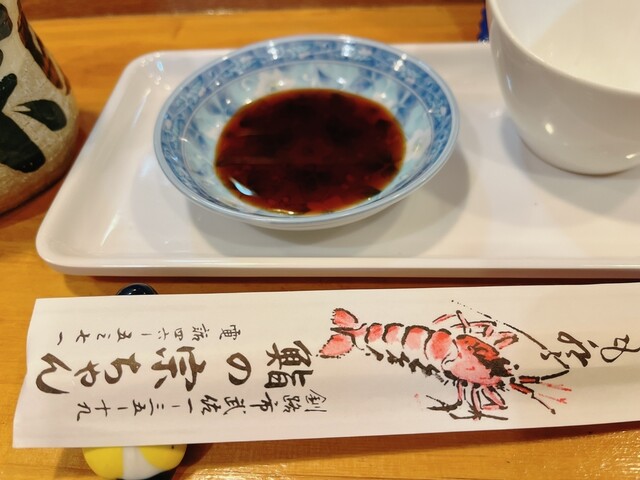 釧路市武佐一ー二五ー十九
鮨の宗ちゃん
電話四六ー五三七一